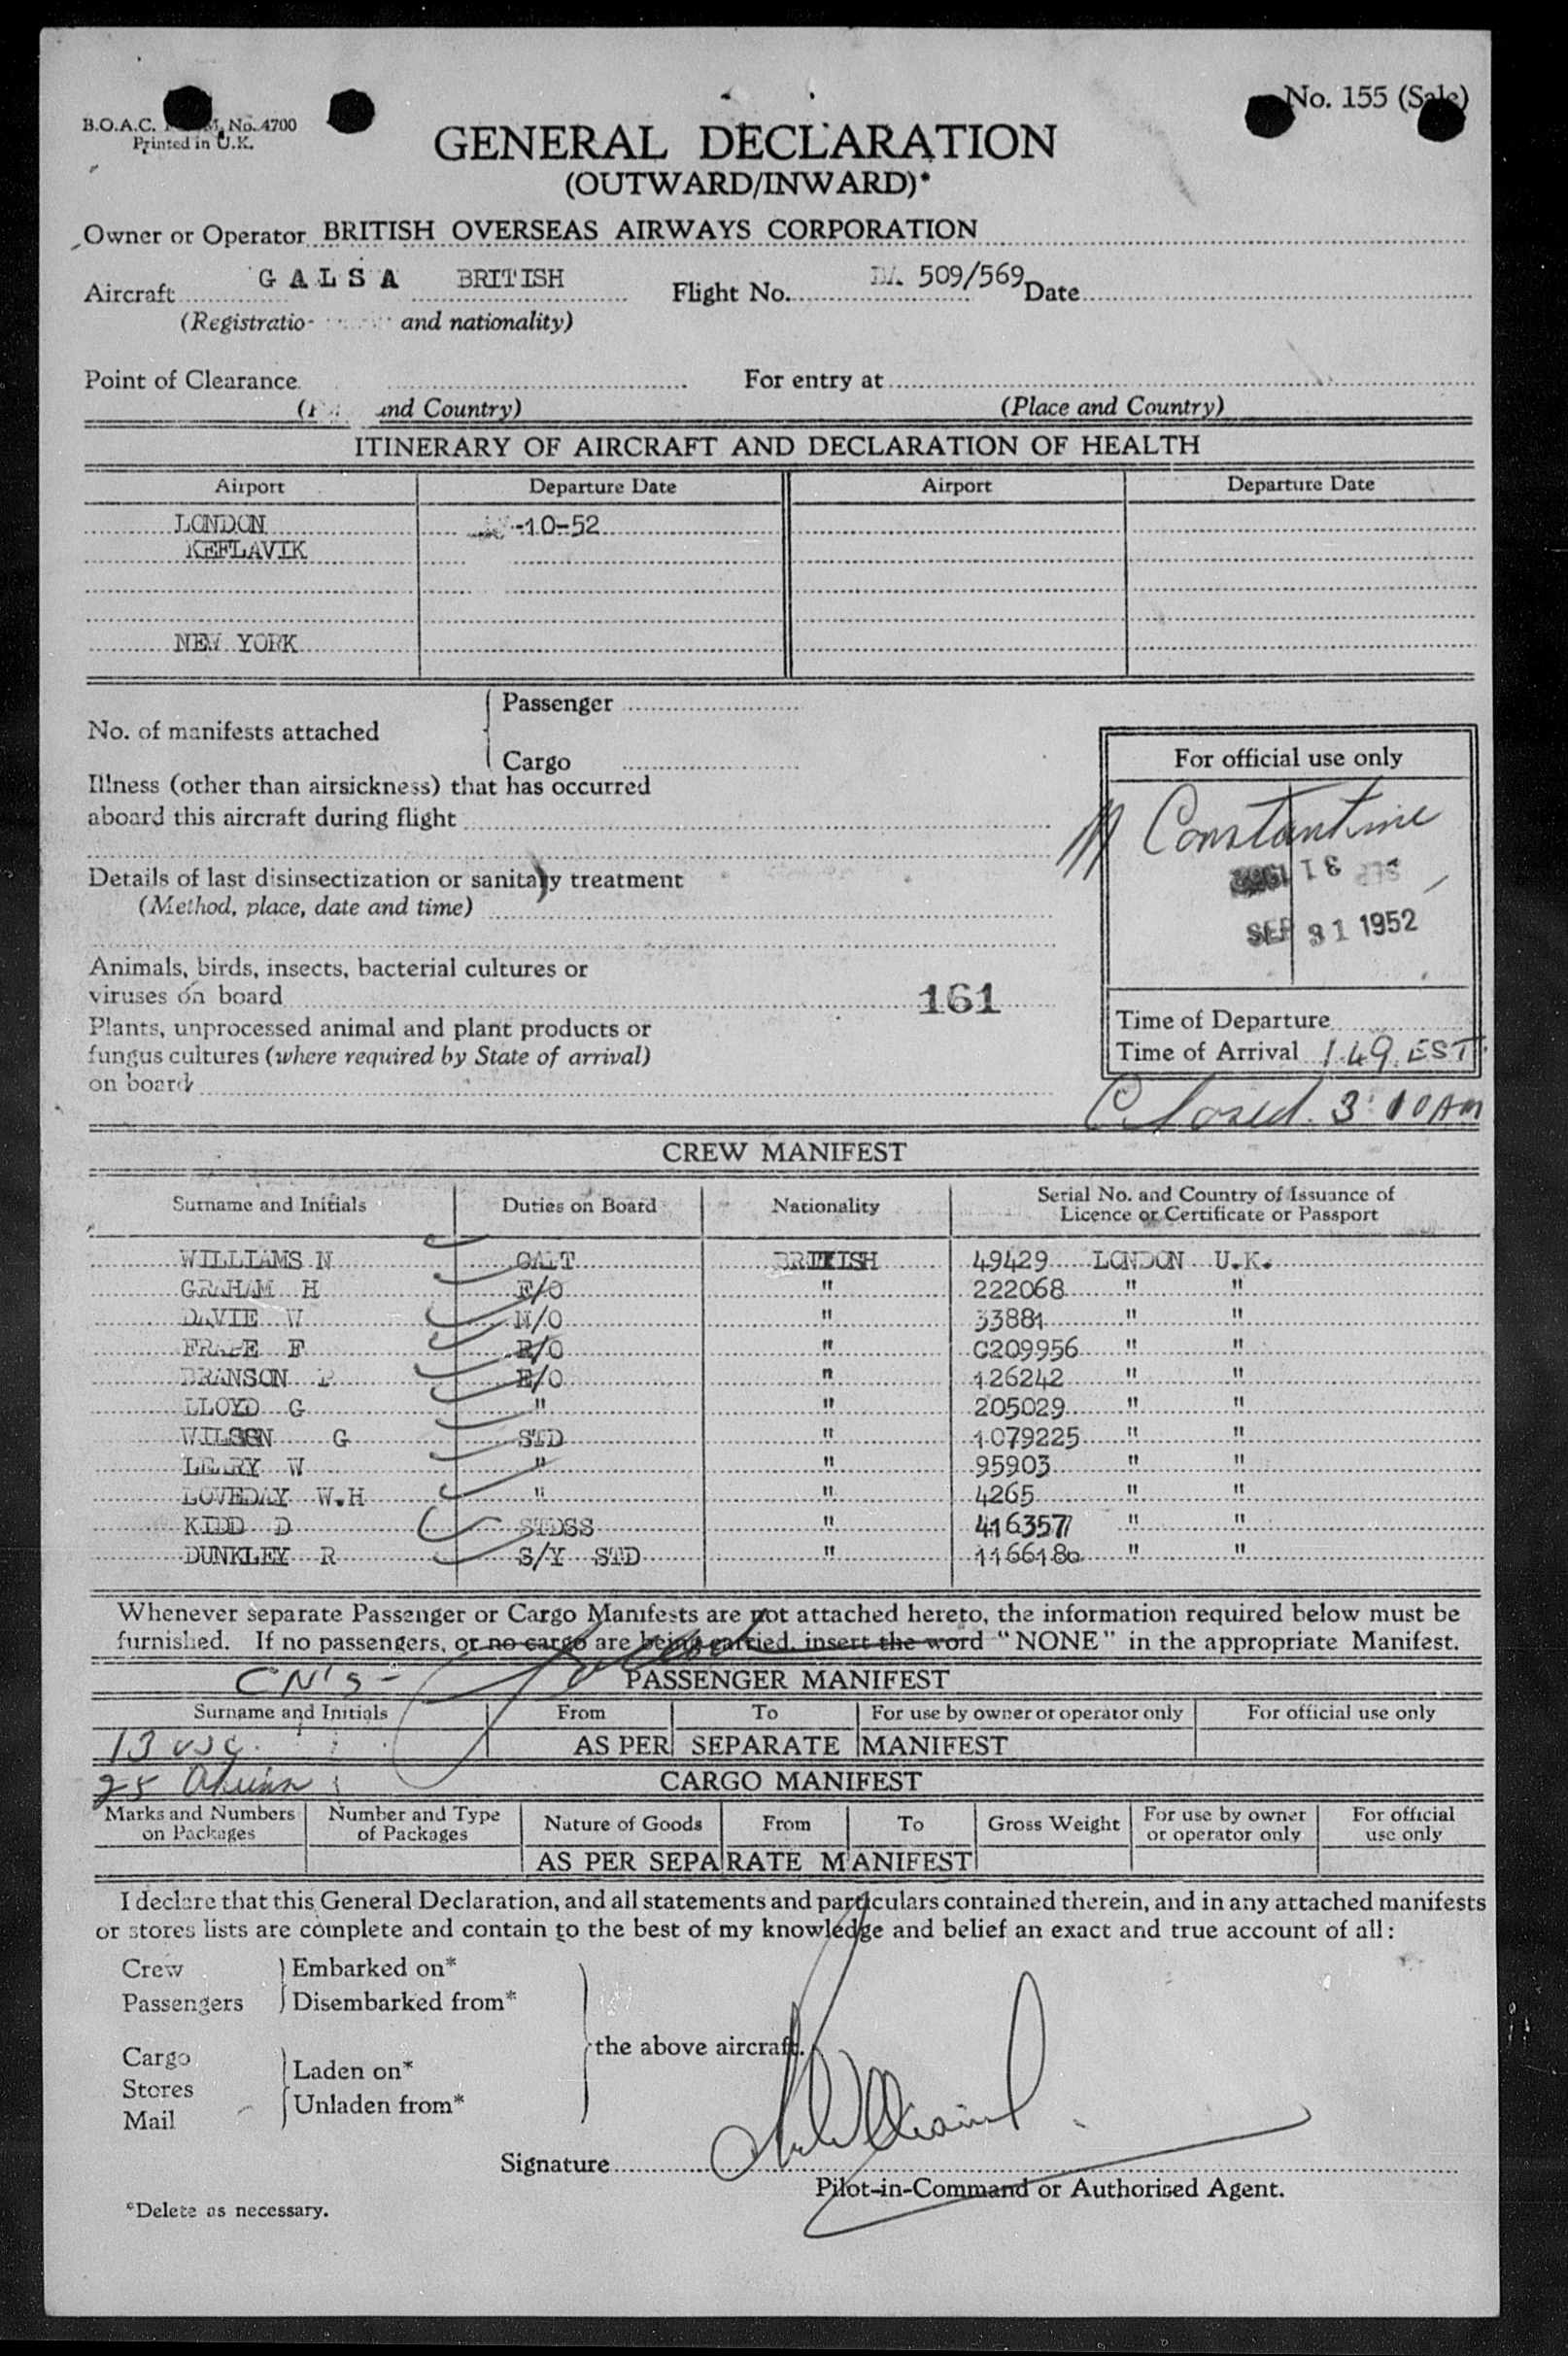 B.O.A.C. No. 4700
Printed in U.K.
No. 155 (Sale)
GENERAL DECLARATION
(OUTWARD/INWARD)*
Owner or Operator BRITISH OVERSEAS AIRWAYS CORPORATION
Aircraft G A L S A BRITISH Flight No. 509/569 Date
(Registratio- and nationality)
Point of Clearance For entry at
and Country) (Place and Country)
ITINERARY OF AIRCRAFT AND DECLARATION OF HEALTH
Airport Departure Date Airport Departure Date
LONDON -10-52
KEFLAVIK
NEW YORK
No. of manifests attached
Passenger
Cargo
Illness (other than airsickness) that has occurred
aboard this aircraft during flight
Details of last disinsectization or sanitary treatment
(Method, place, date and time)
Animals, birds, insects, bacterial cultures or
viruses on board 161
Plants, unprocessed animal and plant products or
fungus cultures (where required by State of arrival)
on board
For official use only
Constantine
SEP 1952
Time of Departure
Time of Arrival 1.49 EST
Closed 3:10 AM
CREW MANIFEST
Surname and Initials Duties on Board Nationality Serial No. and Country of Issuance of
Licence or Certificate or Passport
WILLIAMS N CALT BRITISH 49429 LONDON U.K.
GRAHAM H F/O " 222068 " "
DAVIE W N/O " 33881 " "
F R/O " C209956 " "
BRANSON E/O " 126242 " "
LLOYD G " " 205029 " "
WILSON G STD " 1079225 " "
LEARY W " " 95903 " "
LOVEDAY W.H " " 4265 " "
KIDD D STDSS " 416357 " "
DUNKLEY R S/Y STD " 1166180 " "
Whenever separate Passenger or Cargo Manifests are not attached hereto, the information required below must be
furnished. If no passengers, or no cargo are being carried, insert the word "NONE" in the appropriate Manifest.
CN's -
PASSENGER MANIFEST
Surname and Initials From To For use by owner or operator only For official use only
13 usc.
AS PER SEPARATE MANIFEST
25
CARGO MANIFEST
Marks and Numbers on Packages Number and Type of Packages Nature of Goods From To Gross Weight For use by owner or operator only For official use only
AS PER SEPARATE MANIFEST
I declare that this General Declaration, and all statements and particulars contained therein, and in any attached manifests
or stores lists are complete and contain to the best of my knowledge and belief an exact and true account of all:
Crew
Passengers
Embarked on*
Disembarked from*
Cargo
Stores
Mail
Laden on*
Unladen from*
the above aircraft.
Signature N Williams
Pilot-in-Command or Authorised Agent.
*Delete as necessary.